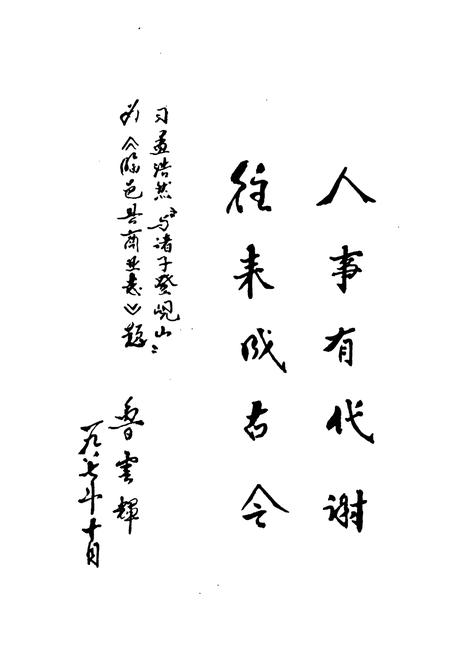 人事有代谢
往来成古今
习孟浩然“与诸子登岘山”
为《临邑县商业志》题
鲁云辉
一九八七年十月